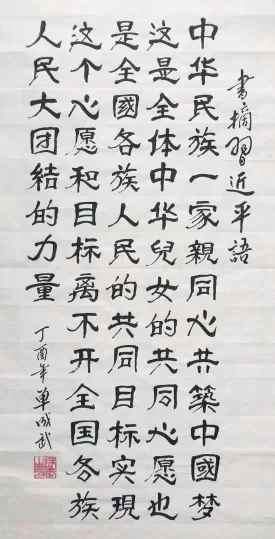 書摘習近平語
中华民族一家親同心共築中國梦
这是全体中华兒女的共同心愿也
是全國各族人民的共同目标实現
这个心愿和目标離不开全国各族
人民大团結的力量
丁酉年單成武